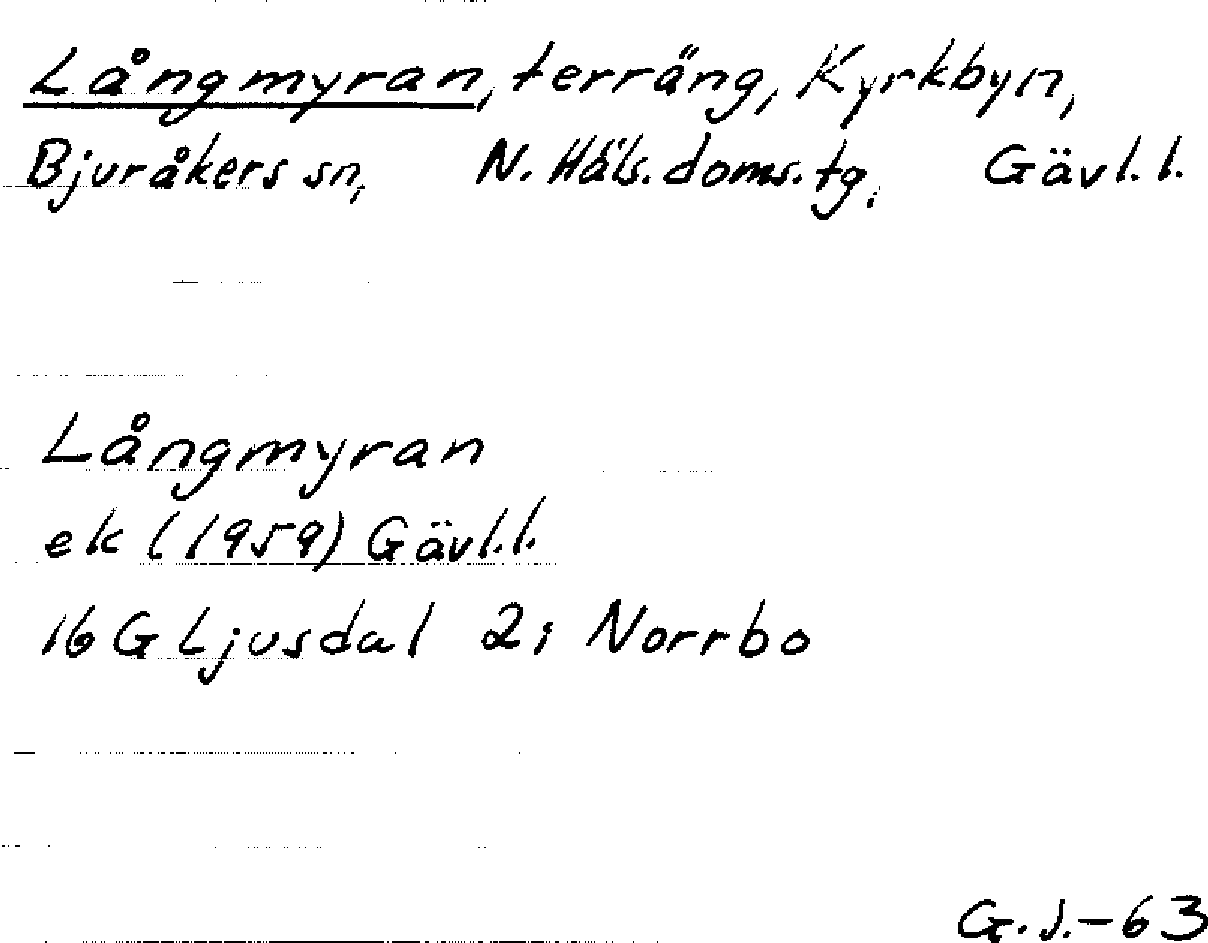 Långmyran, terräng, Kyrkbyn,
Bjuråkers sn, N. Häls. doms. tg, Gävl. l.
Långmyran
ek (1959) Gävl. l.
16 G Ljusdal 2i Norrbo
G. J. - 63